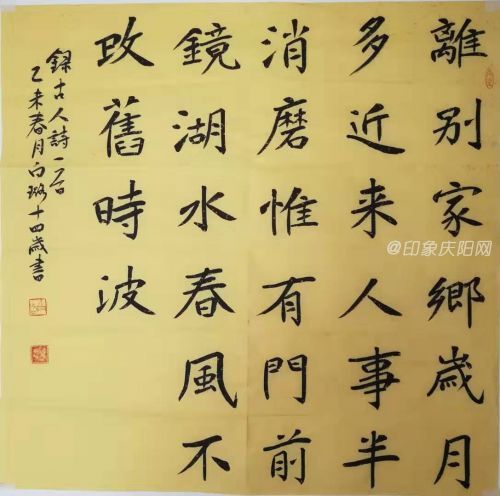 離别家鄉歲月
多近来人事半
消磨惟有門前
鏡湖水春風不
改舊時波
錄古人詩一首
乙未春月白璐十四歲書
@印象庆阳网